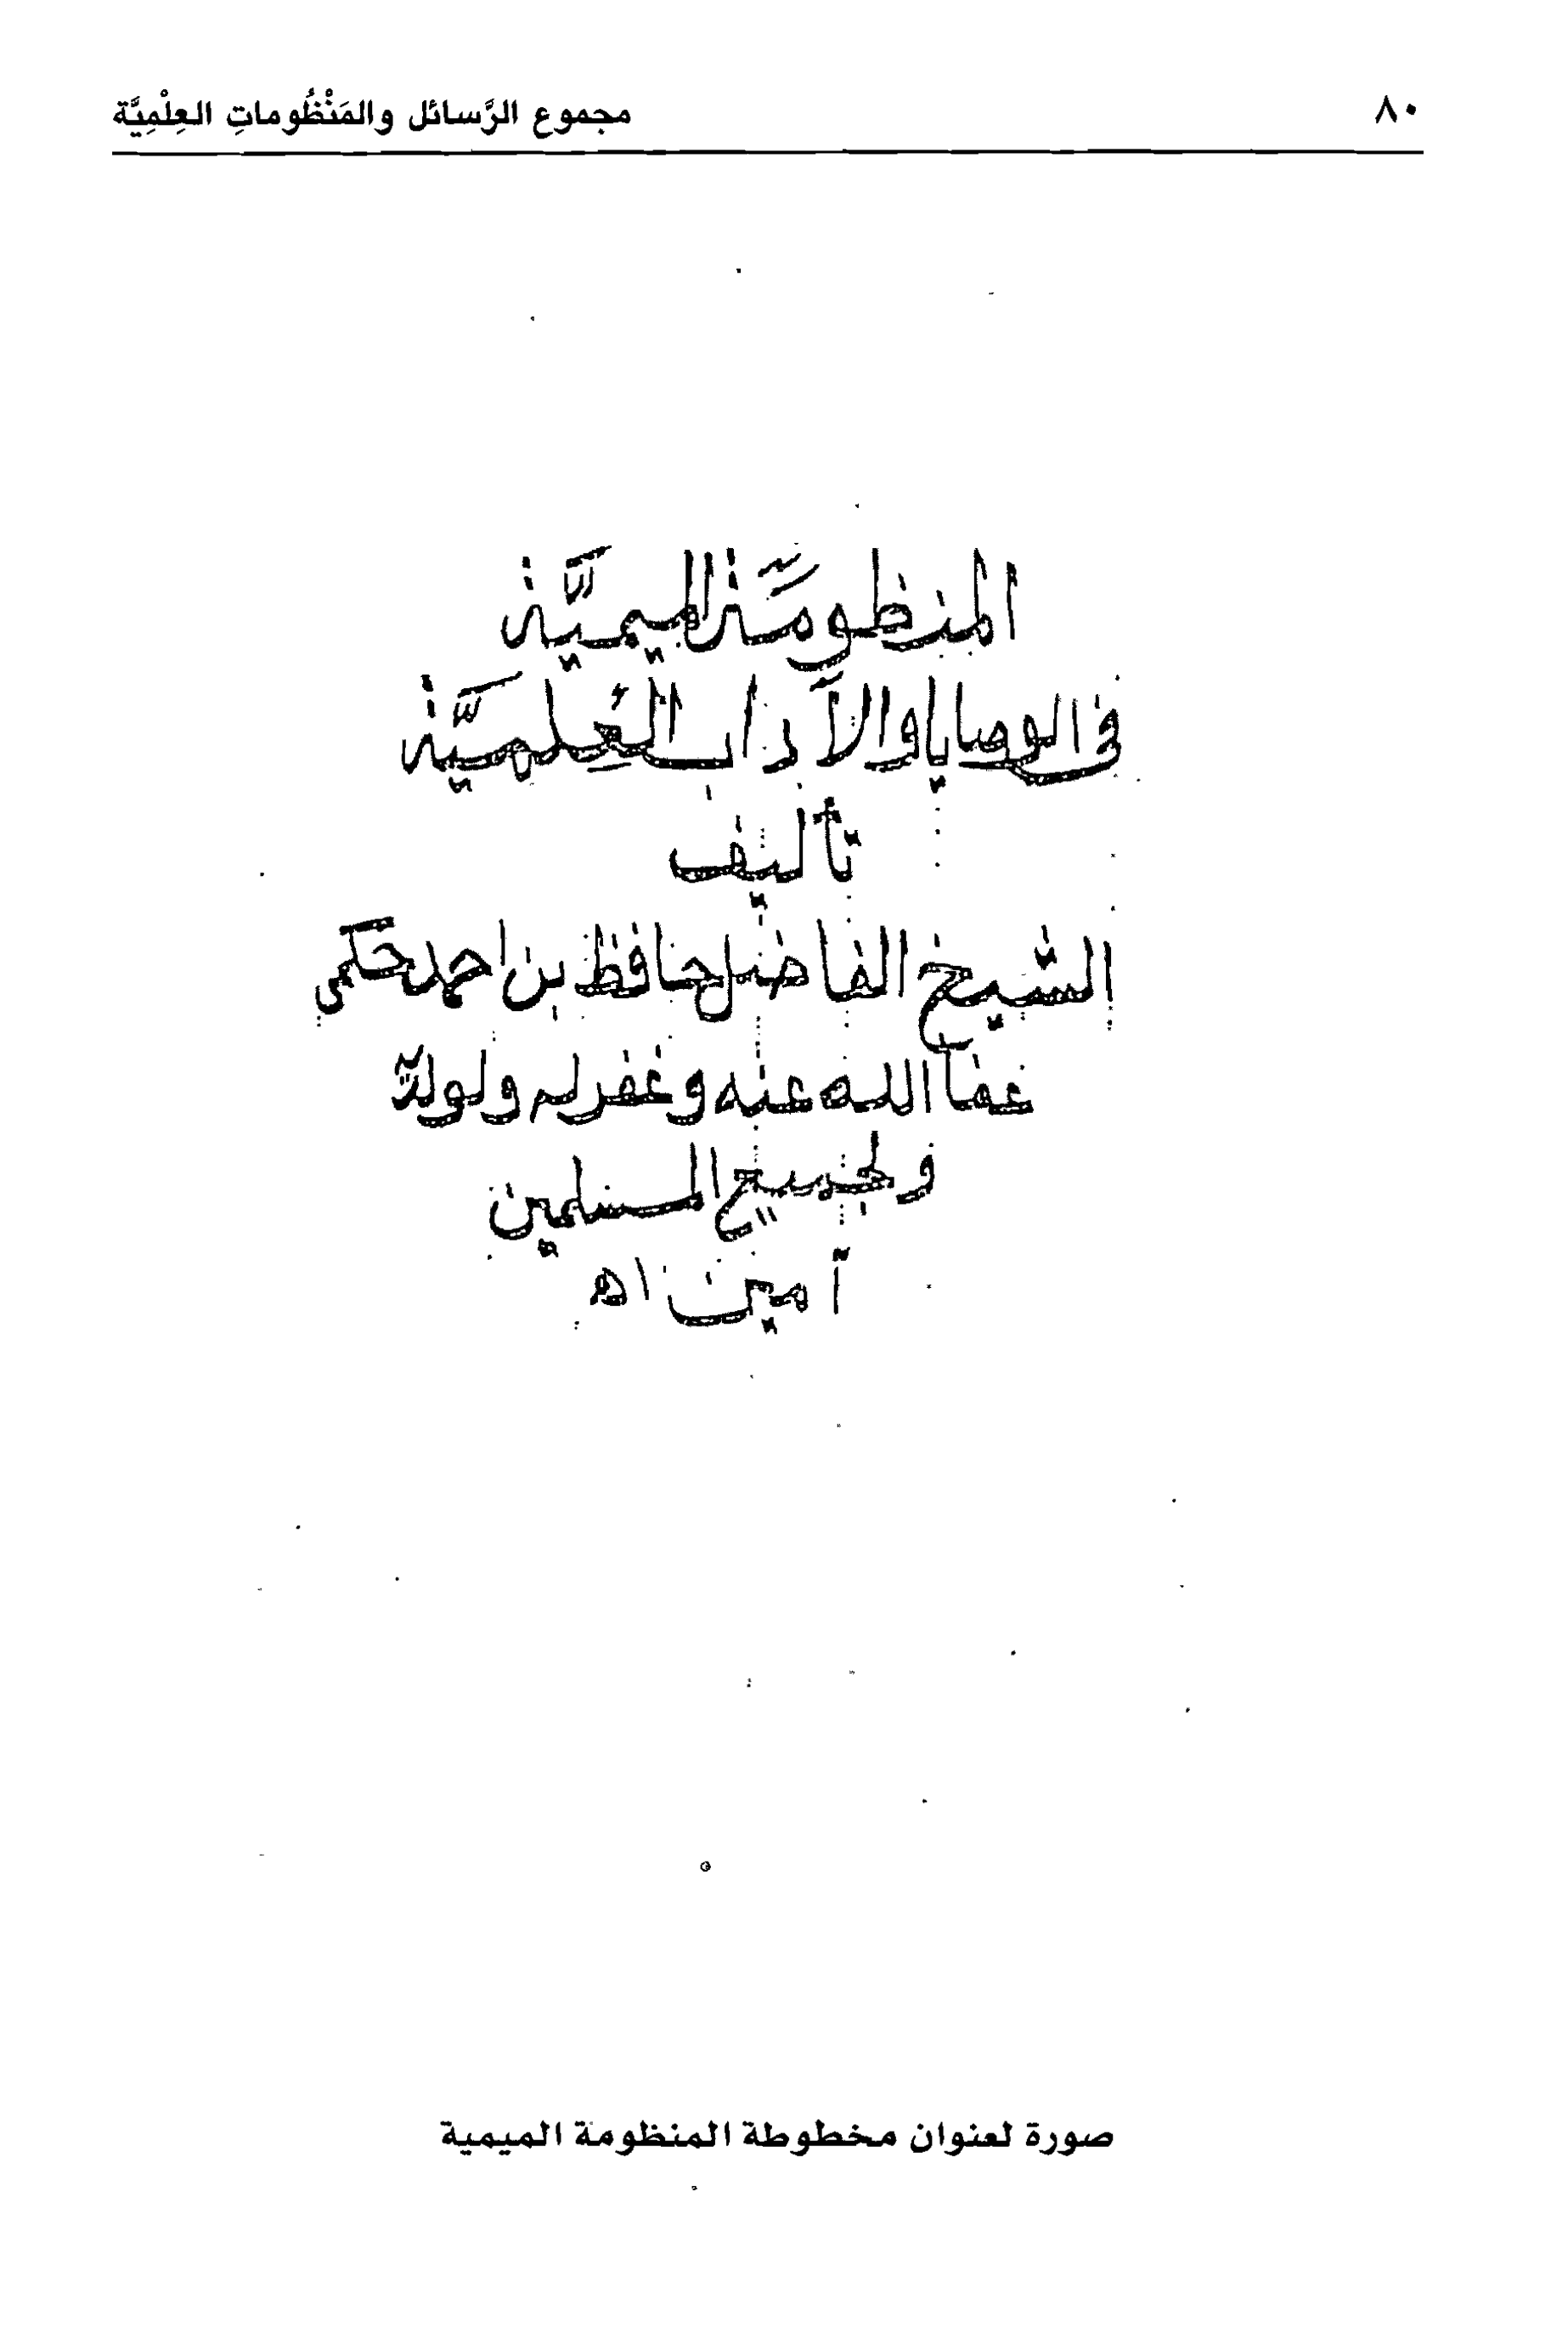 ٨٠ مجموع الرَّسائل والمَنْظُوماتِ العِلْمِيَّة
المنظومة الميميَّة
فى الوصايا والآداب العِلميَّة
تأليف
الشيخ الفاضل حافظ بن احمد حكمى
عفا الله عنه وغفر له ولوالديه
ولجميع المسلمين
آمين اه
صورة لعنوان مخطوطة المنظومة الميمية